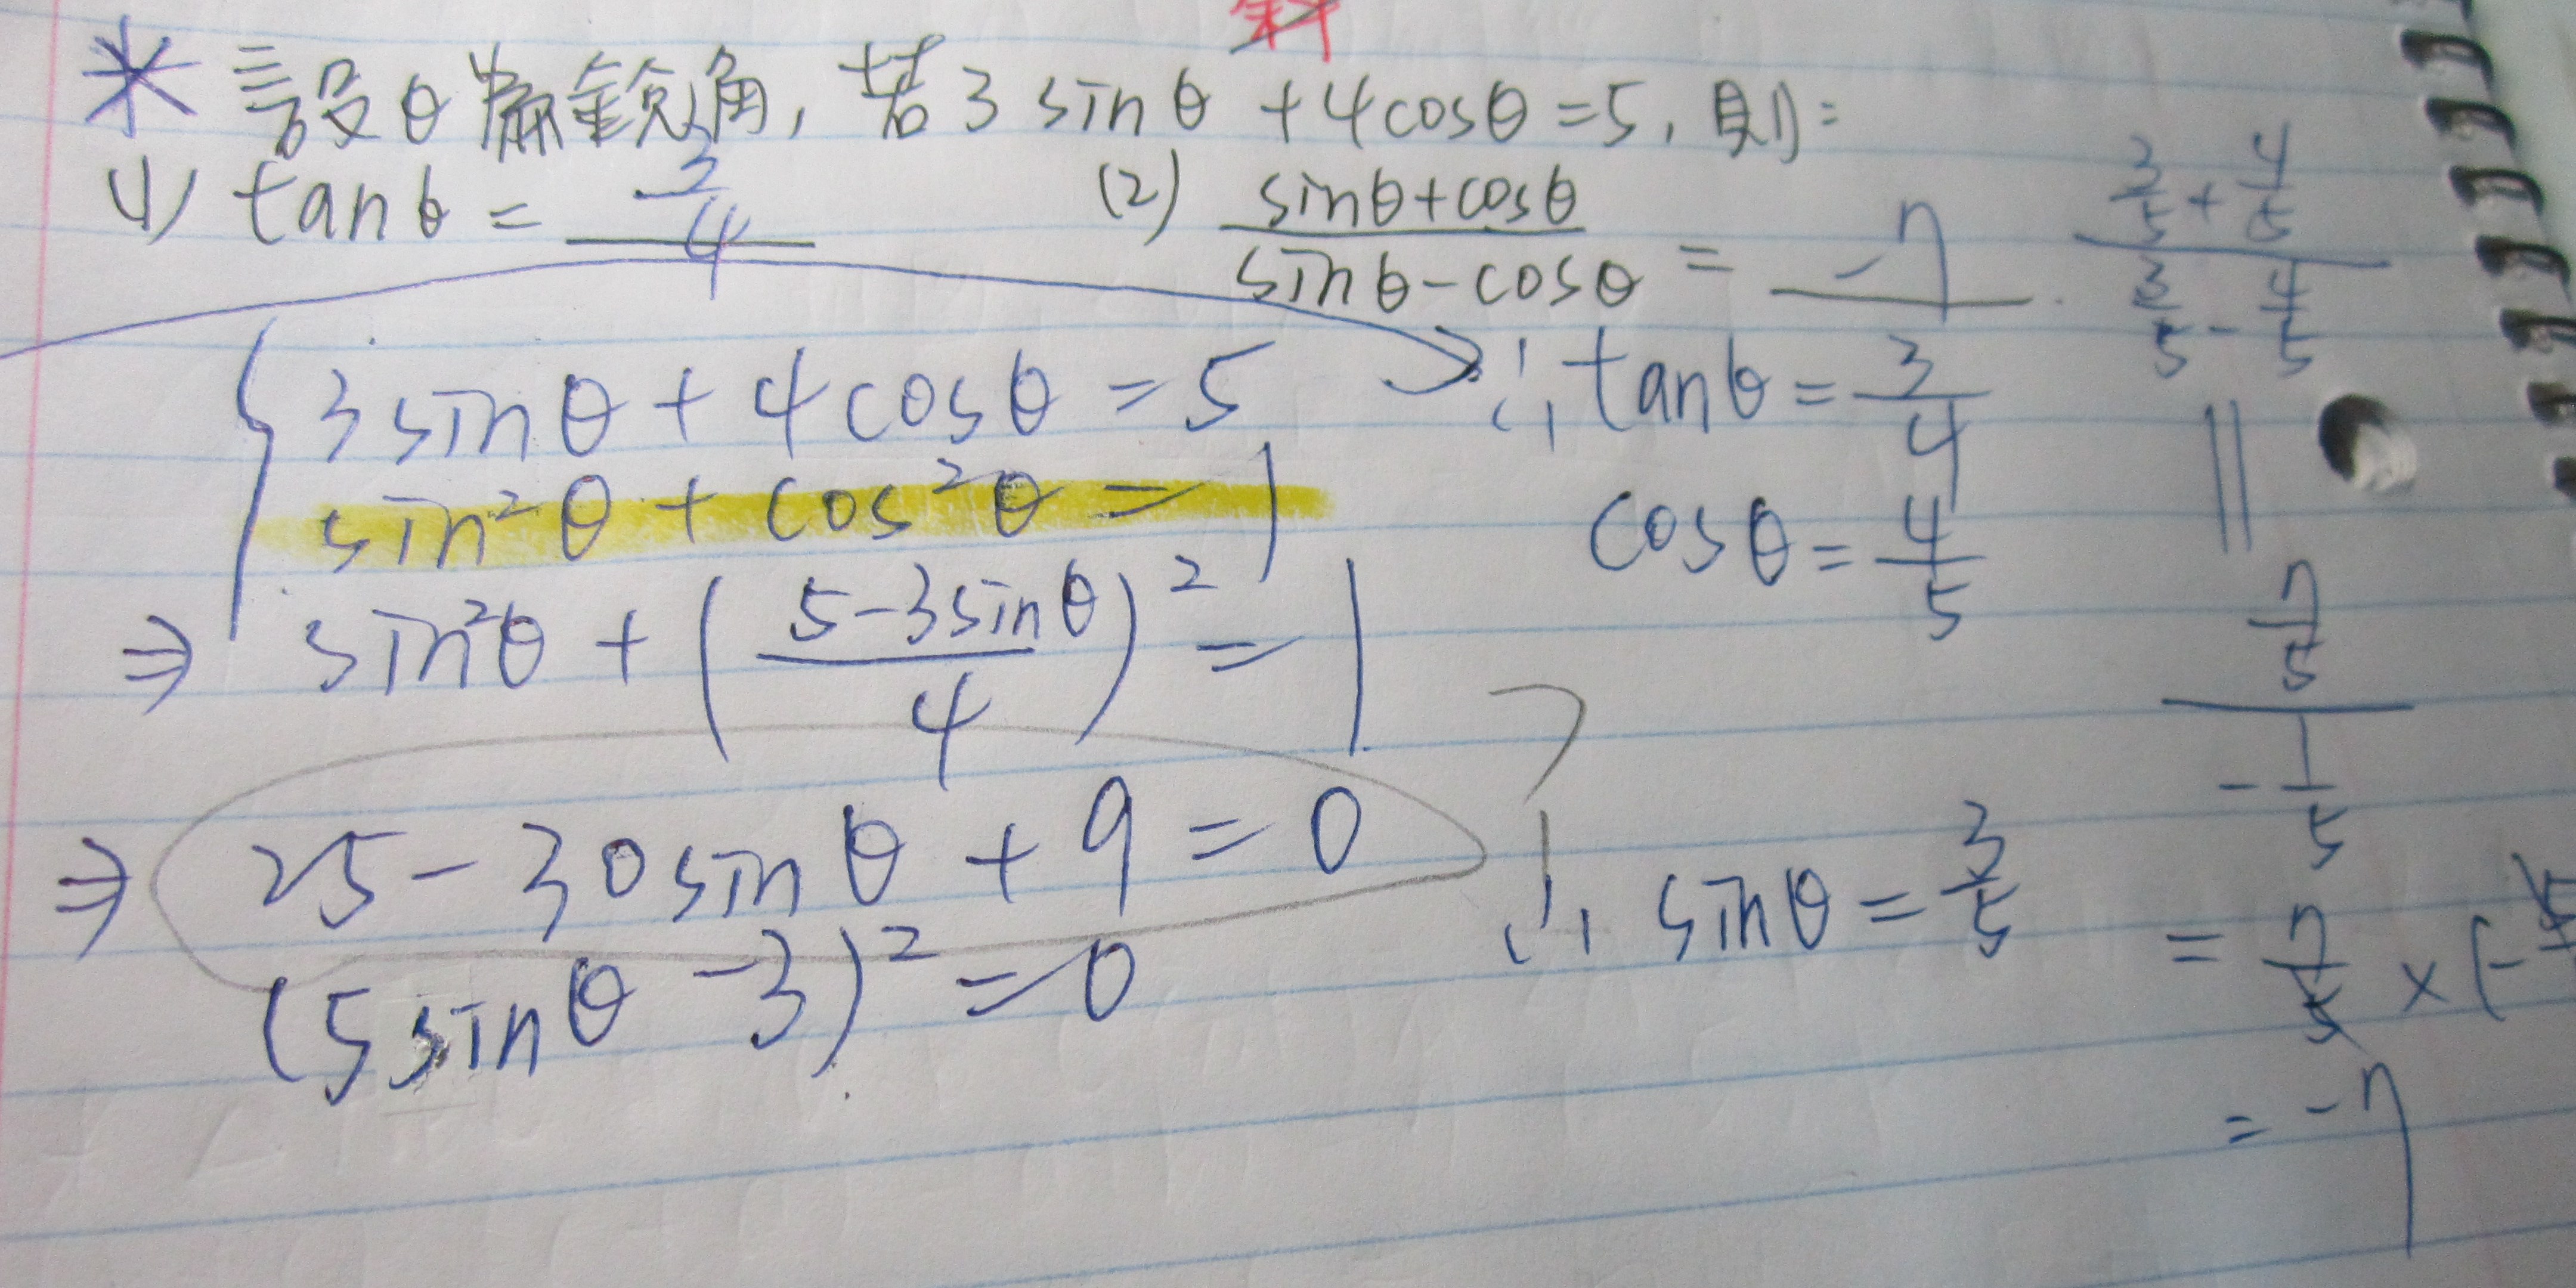 * 設θ為銳角, 若3sinθ+4cosθ=5, 則:
(1) tanθ = 3/4 (2) (sinθ+cosθ)/(sinθ-cosθ) = -7
3sinθ + 4cosθ = 5
sin²θ + cos²θ = 1
⇒ sin²θ + ((5-3sinθ)/4)² = 1
⇒ 25 - 30sinθ + 9 = 0
(5sinθ - 3)² = 0
∴ tanθ = 3/4
cosθ = 4/5
∴ sinθ = 3/5
(3/5 + 4/5)/(3/5 - 4/5)
||
(7/5)/(-1/5)
= 7/5 × (-5
= -7